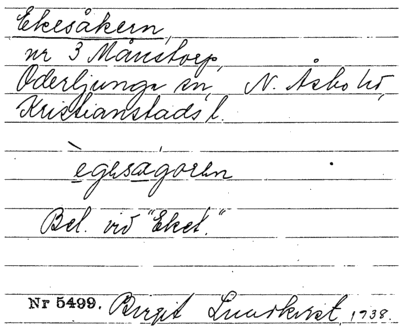 Ekesåkern,
nr 3 Månstorp,
Oderljunga sn, N. Åsbo hd,
Kristianstads l.
`egesagören
Bel. vid "Eket."
Nr 5499. Birgit Lundkvist 1938.